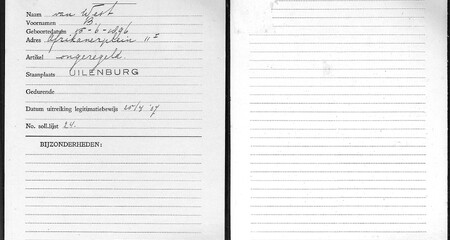 Naam van West
Voornamen B.
Geboortedatum 15-6-1896
Adres Afrikanerplein 11 II
Artikel ongeregeld.
Staanplaats UILENBURG
Gedurende
Datum uitreiking legitimatiebewijs '37
No. soll.lijst 24.
BIJZONDERHEDEN: